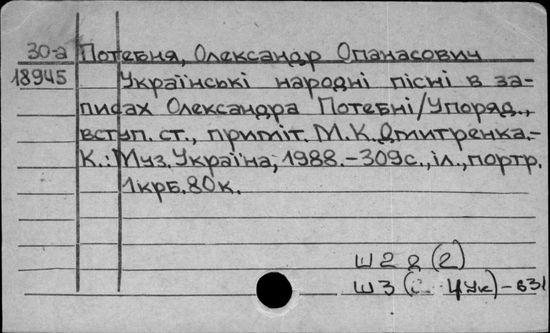 30-а Потебня, Олександр Опанасович
18945 Українські народні пісні в за-
писах Олександра Потебні/Упоряд.,
вступ. ст., приміт. М.К.Дмитренка.-
К.: Муз.Україна, 1988.-309с., іл., портр.
1крб.80к.
Ш2 (2)
Ш3 (4Ук)-631